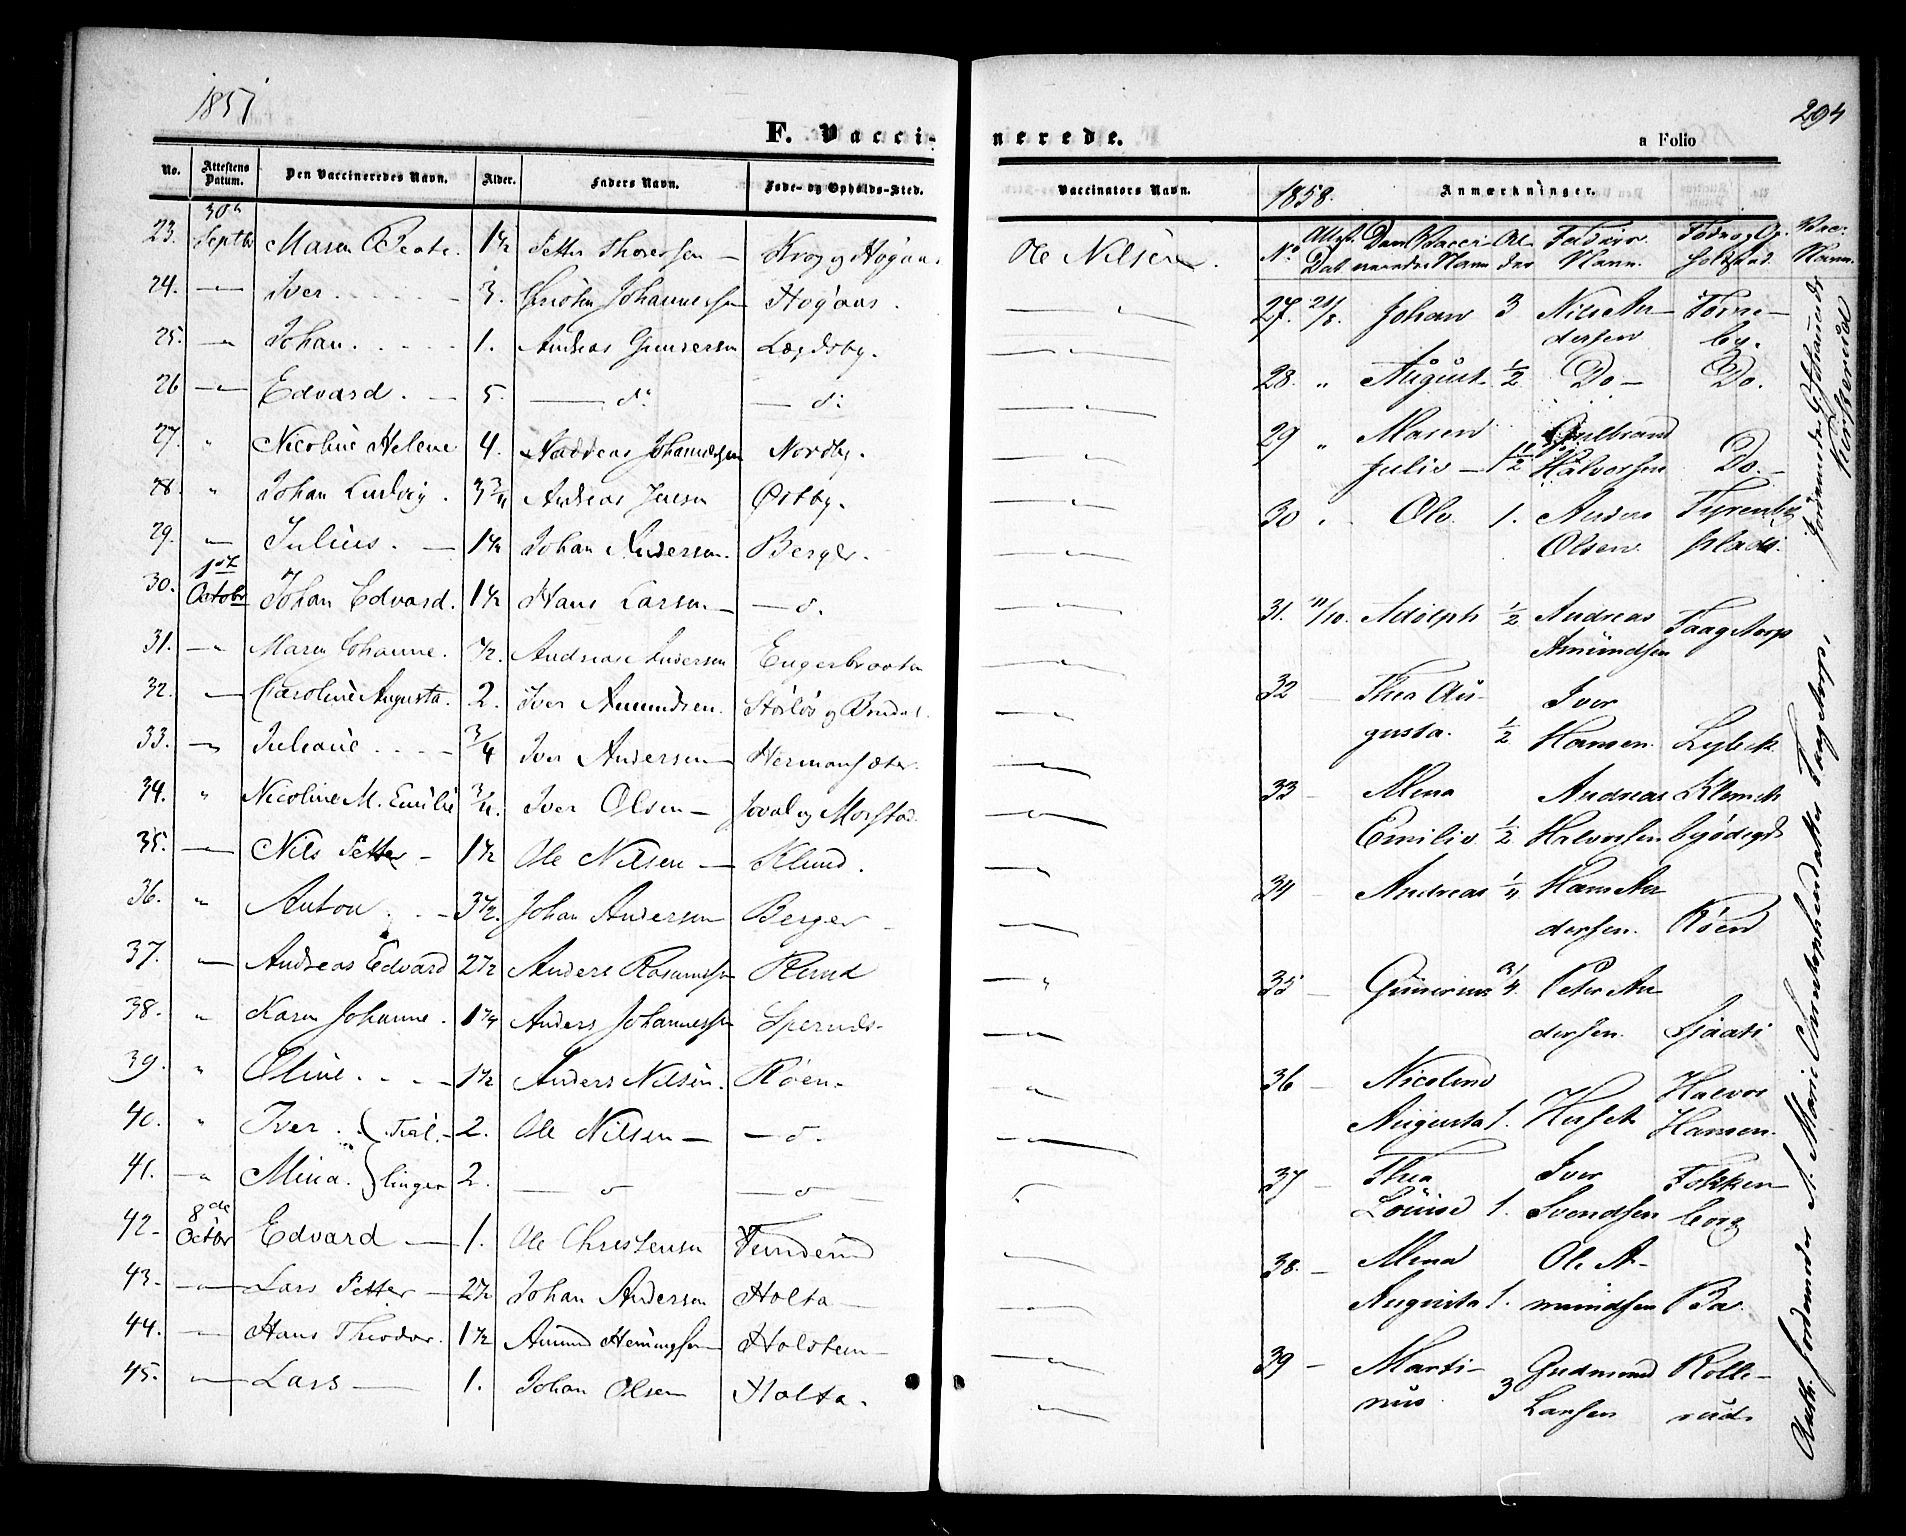 1857
F. Vacci-
No. Attestens Datum. Den Vaccineredes Navn. Alder. Faders Navn. Føde- og Opholds-Sted.
23. 30th Septbr Maren Beate. 1½ Petter Thoresen — Krog og Høgaas
24. — Iver. 3. Christen Johannessen Høgaas.
25. — Johan. 1. Andreas Gundersen Lægdsby.
26 — Edvard. — 5. — do — do
27. " Nicoline Helene 4. Johannessen Nordby.
28. " Johan Ludvig. 3¾ Andreas Jensen Østby.
29. — Julius. — 1½ Johan Andersen. Berger.
30. 1ste Octobr Johan Edvard. 1½ Hans Larsen — — o.
31. — Maren Johanne. ½. Andreas Andersen Engerbraaten
32. — Caroline Augusta. 2. Iver Amundsen. Störlös og
33. — Juliane ¾ Iver Andersen — Hermansæter.
34. " Nicoline M. Emilie ¾. Iver Olsen — Joval og Morstad.
35. — Nils Petter — 1½ Ole Nilsen — Klund.
36. " Anton. — 3½. Johan Andersen Berger —
37. — Andreas Edvard 2½ Anders Rasmussen Klund
38. " Karen Johanne. 1¼ Anders Johannessen
39. " Oline. — 1½ Anders Nilsen. Röen.
40. " Iver. } Tvil- 2. Ole Nilsen — — o.
41. — Mina. } linger 2. — o — o —
42. 8de Octbr Edvard — 1. Ole Christensen
43. — Lars Petter — 2½ Johan Andersen Holta —
44. — Hans Theodor. 1½ Amund Hemingsen Holstein —
45. — Lars — 1. Johan Olsen Holta.
294
nerede. a Folio
Vaccinators Navn. 1858. Anmærkninger.
Ole Nilsen. No Attest. Dat Den Vacci- neredes Navn Al- der Faders Navn. Føde og Op- holdssted. Vac- Navn.
27. 21/8. Johan 3 Nils An- Torne-
dersen by.
28. " August ½ Do — Do.
29 " Maren Gulbrand
Julie — 1½ Halvorsen Do. —
30 . Ole 1. Anders
Olsen
31. 11/10. Adolph ½ Andreas Taagstorp
Amundsen
32 — Thea Au- Iver
gusta. ½ Hansen. Lybeck
33 — Mina Andreas
Emilie ½ Halvorsen
34 — Andreas ¼ Hans An-
dersen. Röen
35 — Gunerius ¾. Peter An-
dersen.
36 — Nicoline Halvor
Augusta 1. Hansen.
37 — Thea Iver Fokken
Louise 1. Svendsen borg
38. — Mina Ole A-
Augusta 1. mundsen
39 — Marti- Gudmund Rolle-
nus 3 Larsen rud.
Jordemoder A. Marie Christophersdatter Taagstorp,